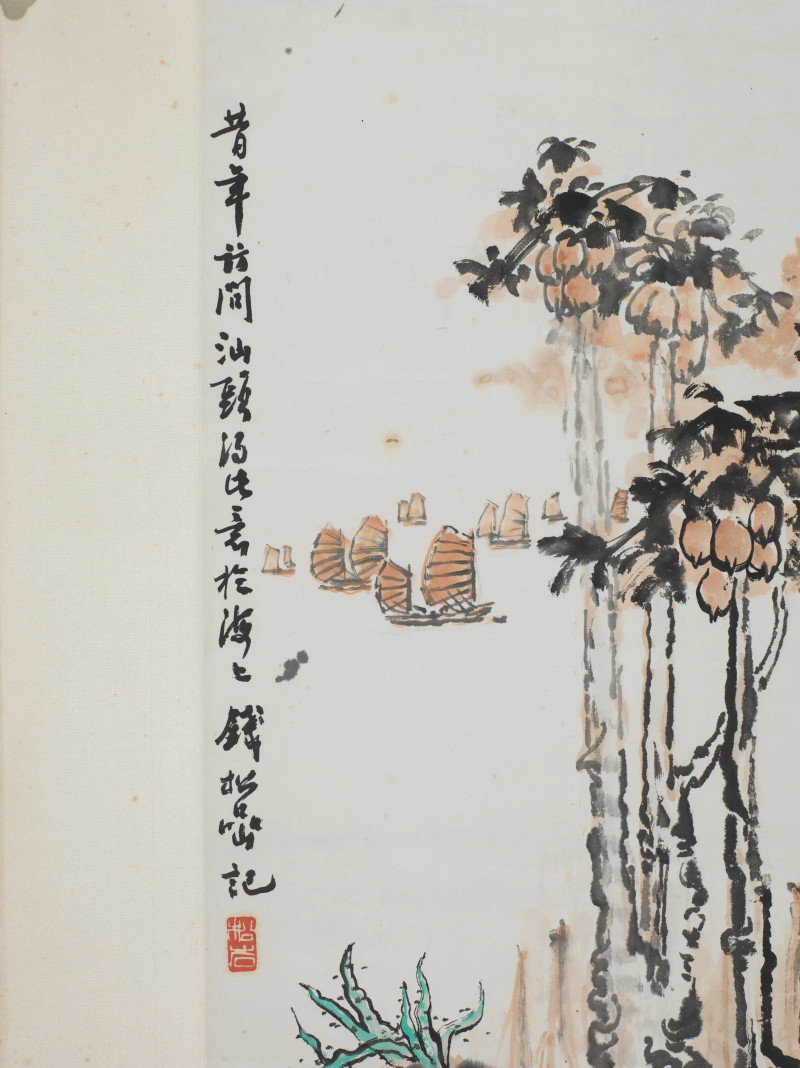 昔年訪問汕頭得此意於海上 錢松嵒記
松嵒